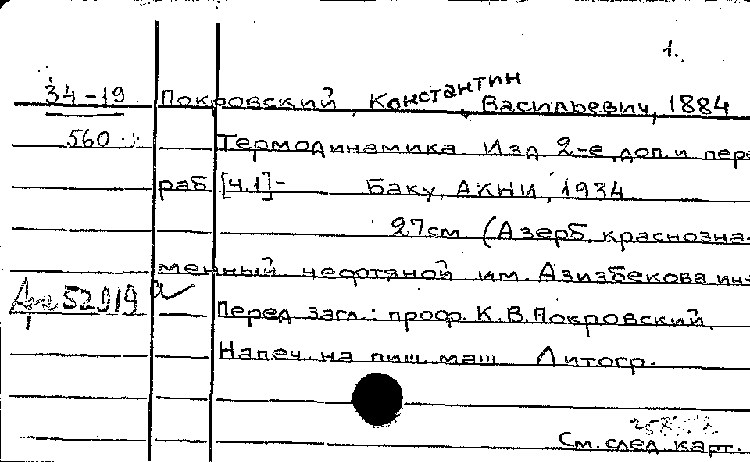 1.
34-19 Покровский, Константин Васильевич, 1884
560 Термодинамика Изд. 2-е, доп. и пере
раб. [ч.1] - Баку, АКНИ, 1934
27 см. (Азерб. краснозна-
менный нефтяной им. Азизбекова ин-
52919
Перед загл.: проф. К.В. Покровский.
Напеч. на пиш. маш. Литогр.
См. след. карт.